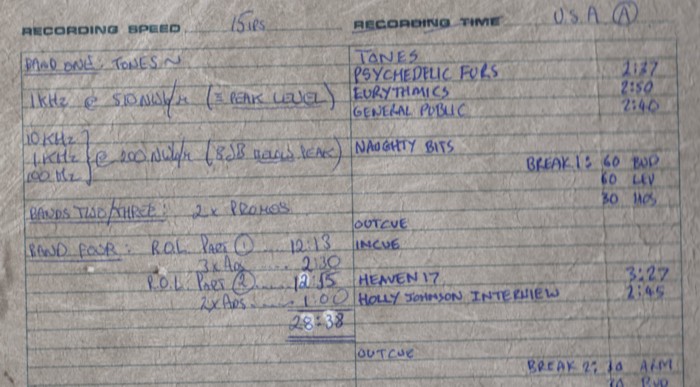 RECORDING SPEED 15 IPS
BAND ONE: TONES ~
1KHz @ 510 NWb/M (= PEAK LEVEL)
10KHz
1KHz
100Hz
@ 200 NWb/M (8dB BELOW PEAK)
BANDS TWO/THREE: 2 x PROMOS
BAND FOUR: R.O.L. PART ① .... 12:13
3x Ads .... 2:30
R.O.L. PART ② .... 12:55
2x Ads .... 1:00
28:38
RECORDING TIME U.S.A Ⓐ
TONES
PSYCHEDELIC FURS 2:37
EURYTHMICS 2:50
GENERAL PUBLIC 2:40
NAUGHTY BITS
BREAK 1: 60 BUD
60 LEV
30 MOS
OUTCUE
INCUE
HEAVEN 17 3:27
HOLLY JOHNSON INTERVIEW 2:45
OUTCUE
BREAK 2:
BUD